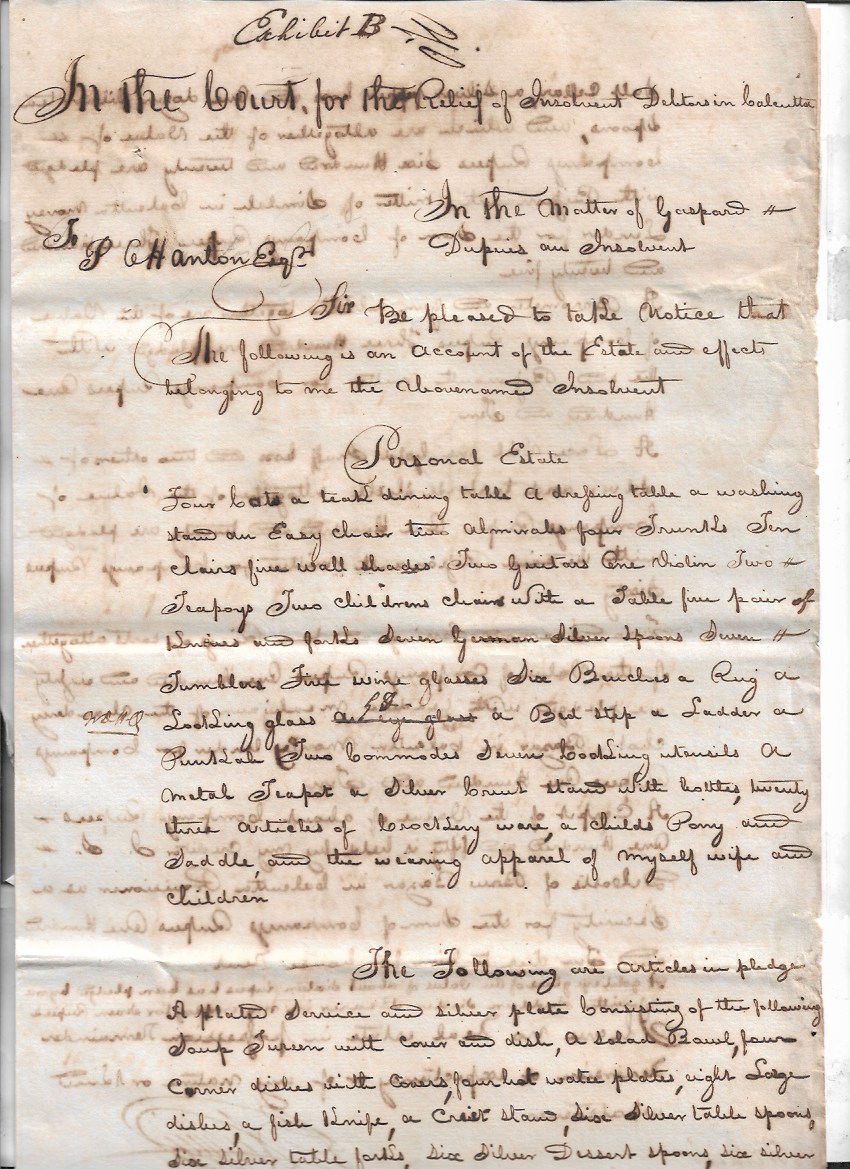 Exhibit B
In the Court, for the Relief of Insolvent Debtors in Calcutta
In the Matter of Gaspard
Dupuis an Insolvent
To
P O Hanlon Esqr
Sir Be pleased to take Notice that
The following is an Account of the Estate and effects
belonging to me the Abovenamed Insolvent
Personal Estate
Four Cots a teak dining table A dressing table a washing
stand an Easy chair two Almirahs four Trunks Ten
Chairs five wall shades Two Guitars One Violin Two
Teapoys Two childrens chairs With a Table five pair of
Knives and forks Seven German Silver spoons Seven
Tumblers Five wine glasses Six Benches a Rug a
Looking glass a Bed step a Ladder a
Punkah Two Commodes Seven Cooking utensils A
Metal Teapot a Silver Cruet stand with bottles, twenty
three Articles of Crockery ware, a childs Pony and
Saddle, and the wearing apparel of myself wife and
children
The Following are Articles in pledge
A plated Service and silver plate Consisting of the following
Soup Tureen with cover and dish, A Salad Bowl, four
Corner dishes with Covers, four hot water plates, eight Large
dishes, a fish Knife, a Cruet stand, Six Silver table spoons,
Six Silver table forks, Six Silver Dessert spoons, six silver